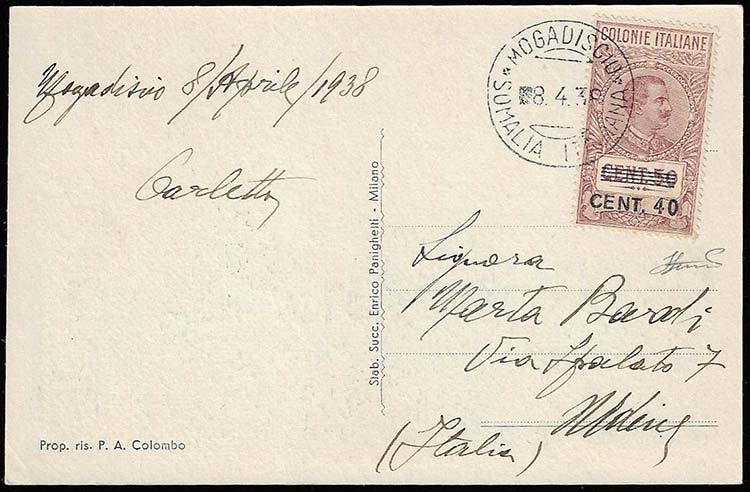 Mogadiscio 8/Aprile/1938
Carletto
Stab. Succ. Enrico Panighetti - Milano
Prop. ris. P. A. Colombo
* MOGADISCIO *
8.4.38
SOMALIA ITALIANA
COLONIE ITALIANE
CENT. 50
CENT. 40
Signora
Marta Bardi
Via Spalato 7
Udine
(Italia)